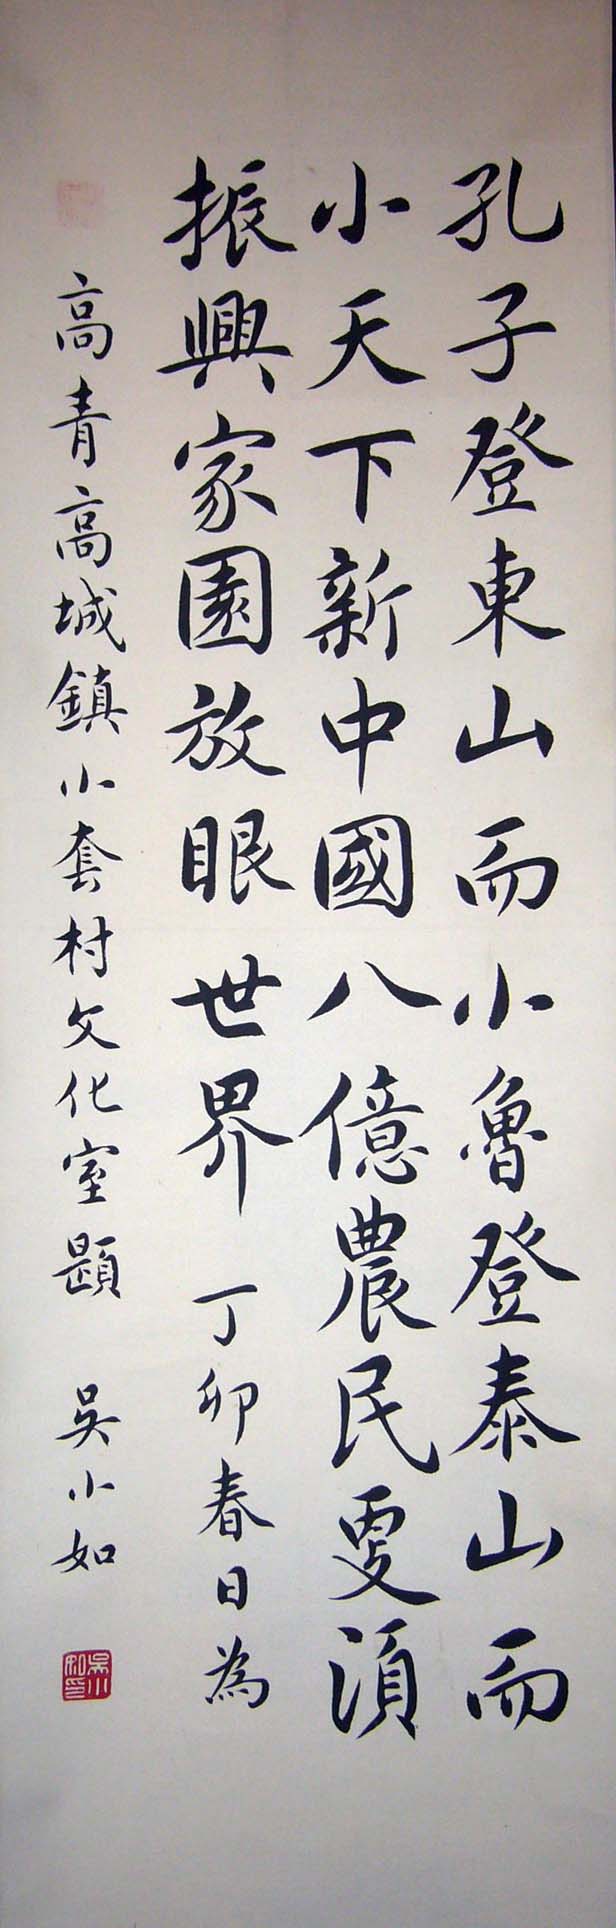 孔子登東山而小魯登泰山而
小天下新中國八億農民更須
振興家園放眼世界 丁卯春日為
高青高城鎮小套村文化室題 吳小如
吳小如印